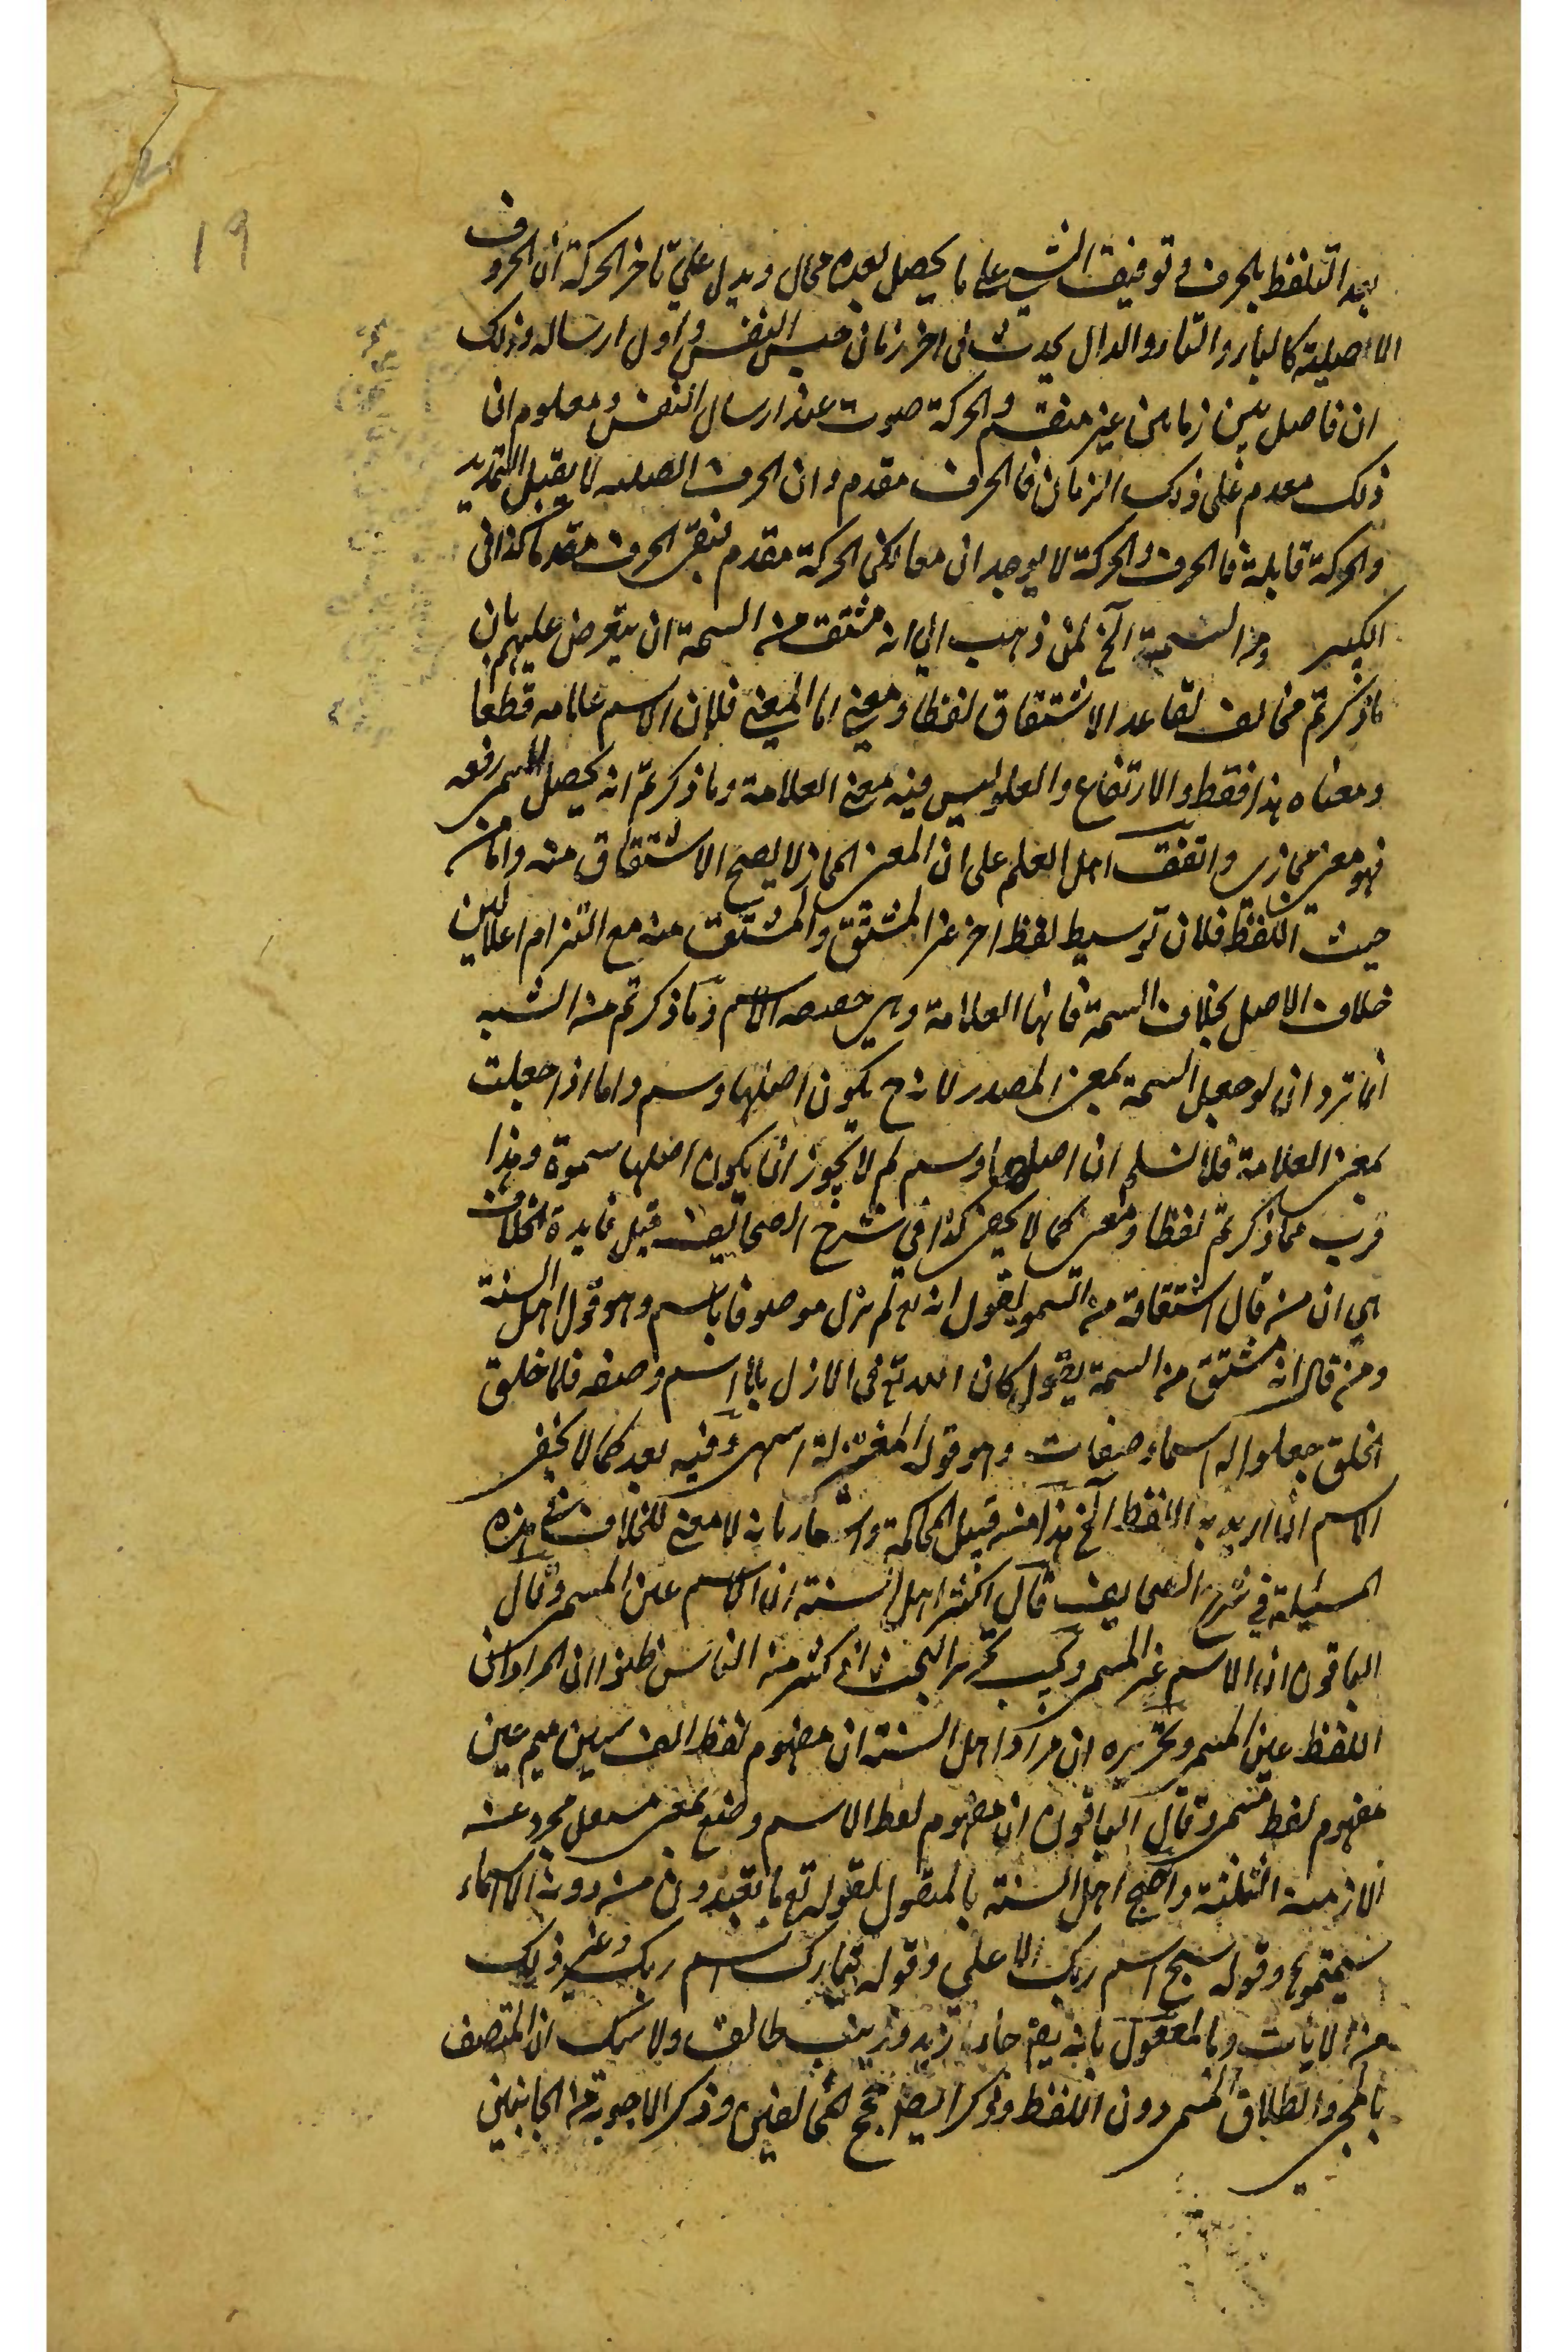 19
بعد التلفظ بالحرف وتوقيف الشيء على ما يحصل بعده محال ويدل على تاخر الحركة ان الحروف
الاصلية كالباء والتاء والدال يحدث في اخر زمان حبس النفس واول ارساله وذلك
ان فاصل بين زمانين غير منقسم والحركة صوت عند ارسال النفس ومعلوم ان
ذلك معدم على ذلك الزمان فالحرف مقدم وان الحرف الصلبه لا يقبل التمديد
والحركة قابلة فالحرف والحركة لا يوجدان معا لكن الحركة مقدم فبقي الحرف مقدما كذا في
الكبير ومن السمة الخ لمن ذهب الى انه مشتق من السمة ان يتعرض عليهم بان
ما ذكرتم مخالف لقاعد الاشتقاق لفظا ومعنى اما المعنى فلان الاسم علامه قطعا
ومعناه هذا فقط والارتفاع والعلو ليس فيه معنى العلامة وما ذكرتم انه يحصل للمسمى رفعه
فهو معنى مجازى واتفق اهل العلم على ان المعنى المجازي لا يصح الاشتقاق منه واما من
حيث اللفظ فلان توسيط لفظ اخر غير المشتق والمشتق منه مع التزام اعلالين
خلاف الاصل بخلاف السمة فانها العلامة وهي حصه الاسم وما ذكرتم من الشبه
انما ترد ان لو جعل السمة بمعنى المصدر لانه ح يكون اصلها وسم واما اذا جعلت
بمعنى العلامة فلا نسلم ان اصلها وسم لم لا يجوز ان يكون اصلها سموة وهذا
قرب مما ذكرتم لفظا ومعنى كما لا يخفى كذا في شرح الصحائف قيل فايدة الخلاف
هي ان من قال اشتقاقه من السمو يقول انه تع لم يزل موصوفا باسم وهو قول اهل السنة
ومن قال انه مشتق من السمة يقول كان الله تع في الازل بلا اسم وصفه فلما خلق
الخلق جعلوا له اسماء وصفات وهو قول المعتزلة انتهى وفيه بعد كما لا يخفى
الاسم ان اريد به اللفظ الخ هذا من قبيل المحاكمة واشعار بانه لا معنى للخلاف في هذه
المسئلة في شرح الصحايف قال اكثر اهل السنة ان الاسم عين المسمى وقال
الباقون ان الاسم غير المسمى ويجب تحرير البحث فان كثير من الناس ظنوا ان المراد ان
اللفظ عين المسمى وتحريره ان مراد اهل السنة ان مفهوم لفظ الف سين ميم عين
مفهوم لفظ مسمى وقال الباقون ان مفهوم لفظ الاسم وضع بمعنى مجرد عن
الازمنة الثلثة واحتج اهل السنة بالمنقول لقوله تع ما تعبدون من دونه الا اسماء
سميتموها وقوله سبح اسم ربك الاعلى وقوله تبارك اسم ربك وغير ذلك
من الايات وبالمعقول بانه يقر جاء زيد وزينب طالق ولا شك ان المتصف
بالمجي والطلاق المسمى دون اللفظ وذكر ايضا حجج المخالفين وذكر الاجوبة من الجانبين